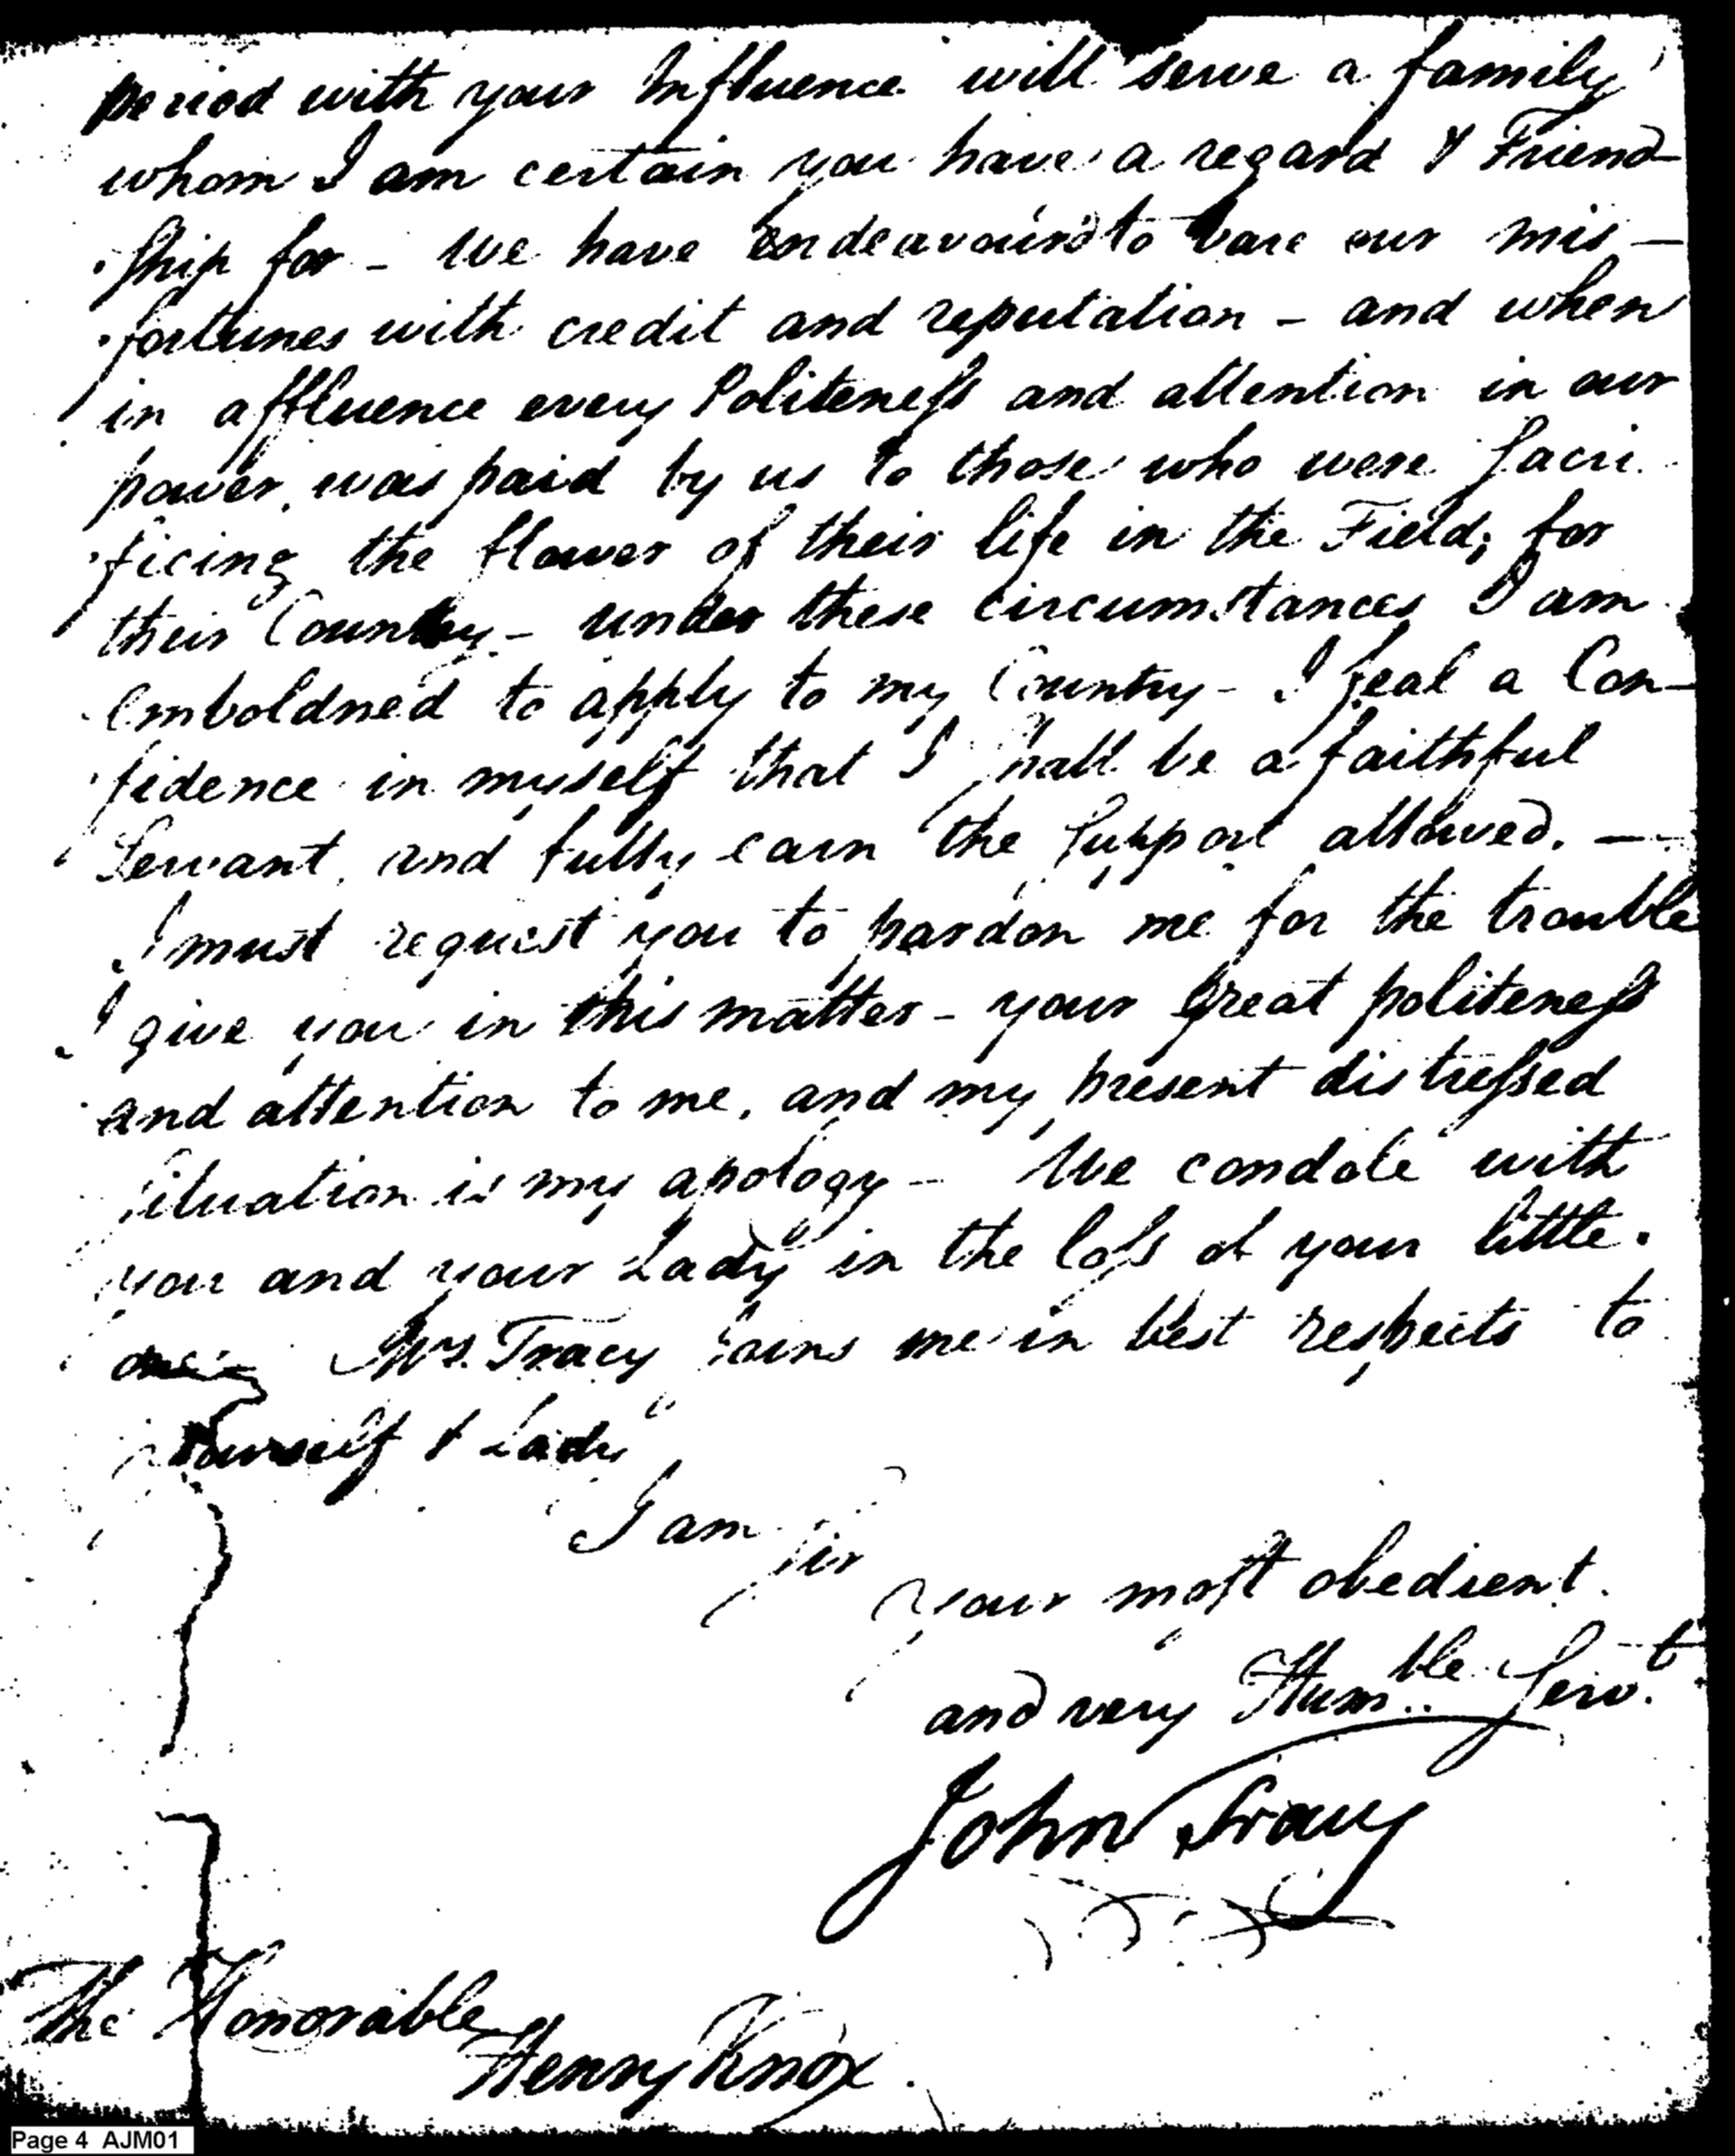 period with your Influence will serve a family
whom I am certain you have a regard & Friend-
ship for - We have endeavour'd to bare our mis-
fortunes with credit and reputation - and when
in affluence every Politeness and attention in our
power, was paid by us to those who were sacri
ficing the flower of their life in the Field, for
their Country - under these circumstances I am
emboldned to apply to my Country - I feal a Con-
fidence in myself that I shall be a faithful
Servant, and fully earn the support allowed. -
I must request you to pardon me for the trouble
I give you in this matter - your great politeness
and attention to me, and my present distressed
situation is my apology - We condole with
you and your Lady in the loss of your little
one - Mrs. Tracy joins me in best respects to
yourself & Lady
I am
Sir
your most obedient
and very Humble Servt
John Tracy
The Honorable
Henry Knox.
Page 4 AJM01